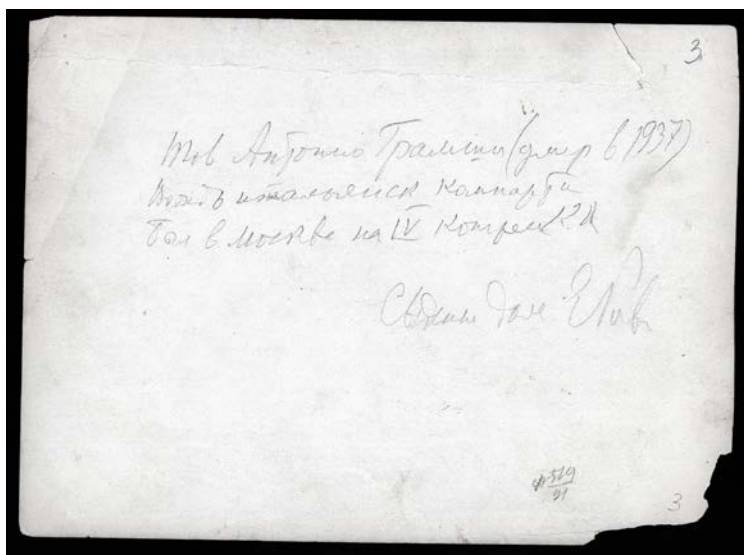 3
Тов Антонио Грамши (умер в 1937)
Вождь итальянск компарти
был в Москве на IV Конгрес
Сведения дала
3